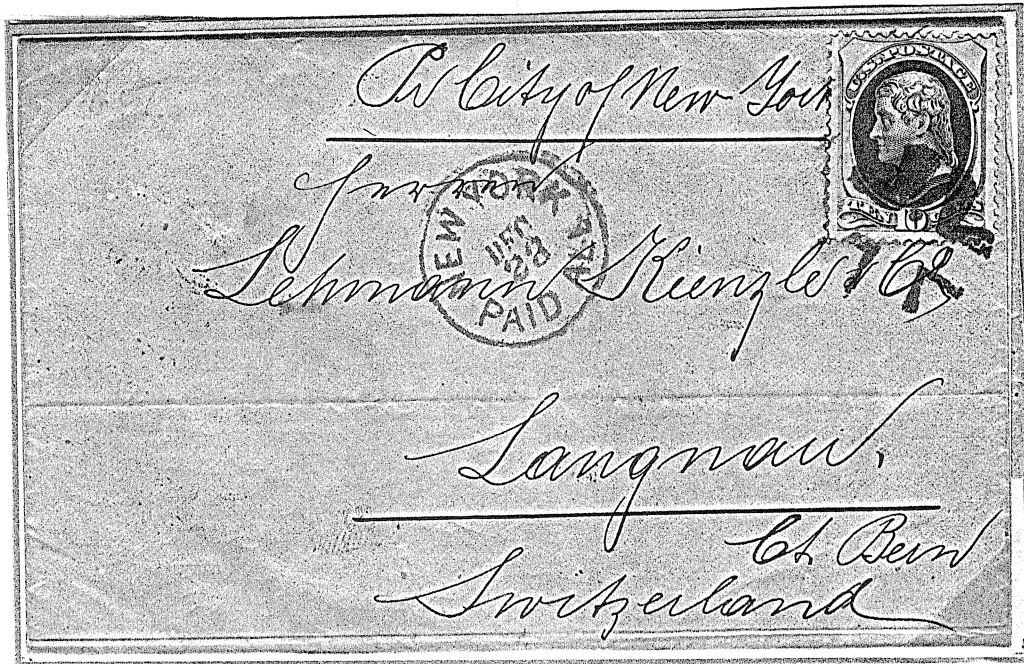 Pr City of New York
U.S. POSTAGE
TEN
Herren
NEW YORK N.Y.
DEC
28
PAID
Lehmann Kienzle & Co
Langnau.
Ct. Bern
Switzerland